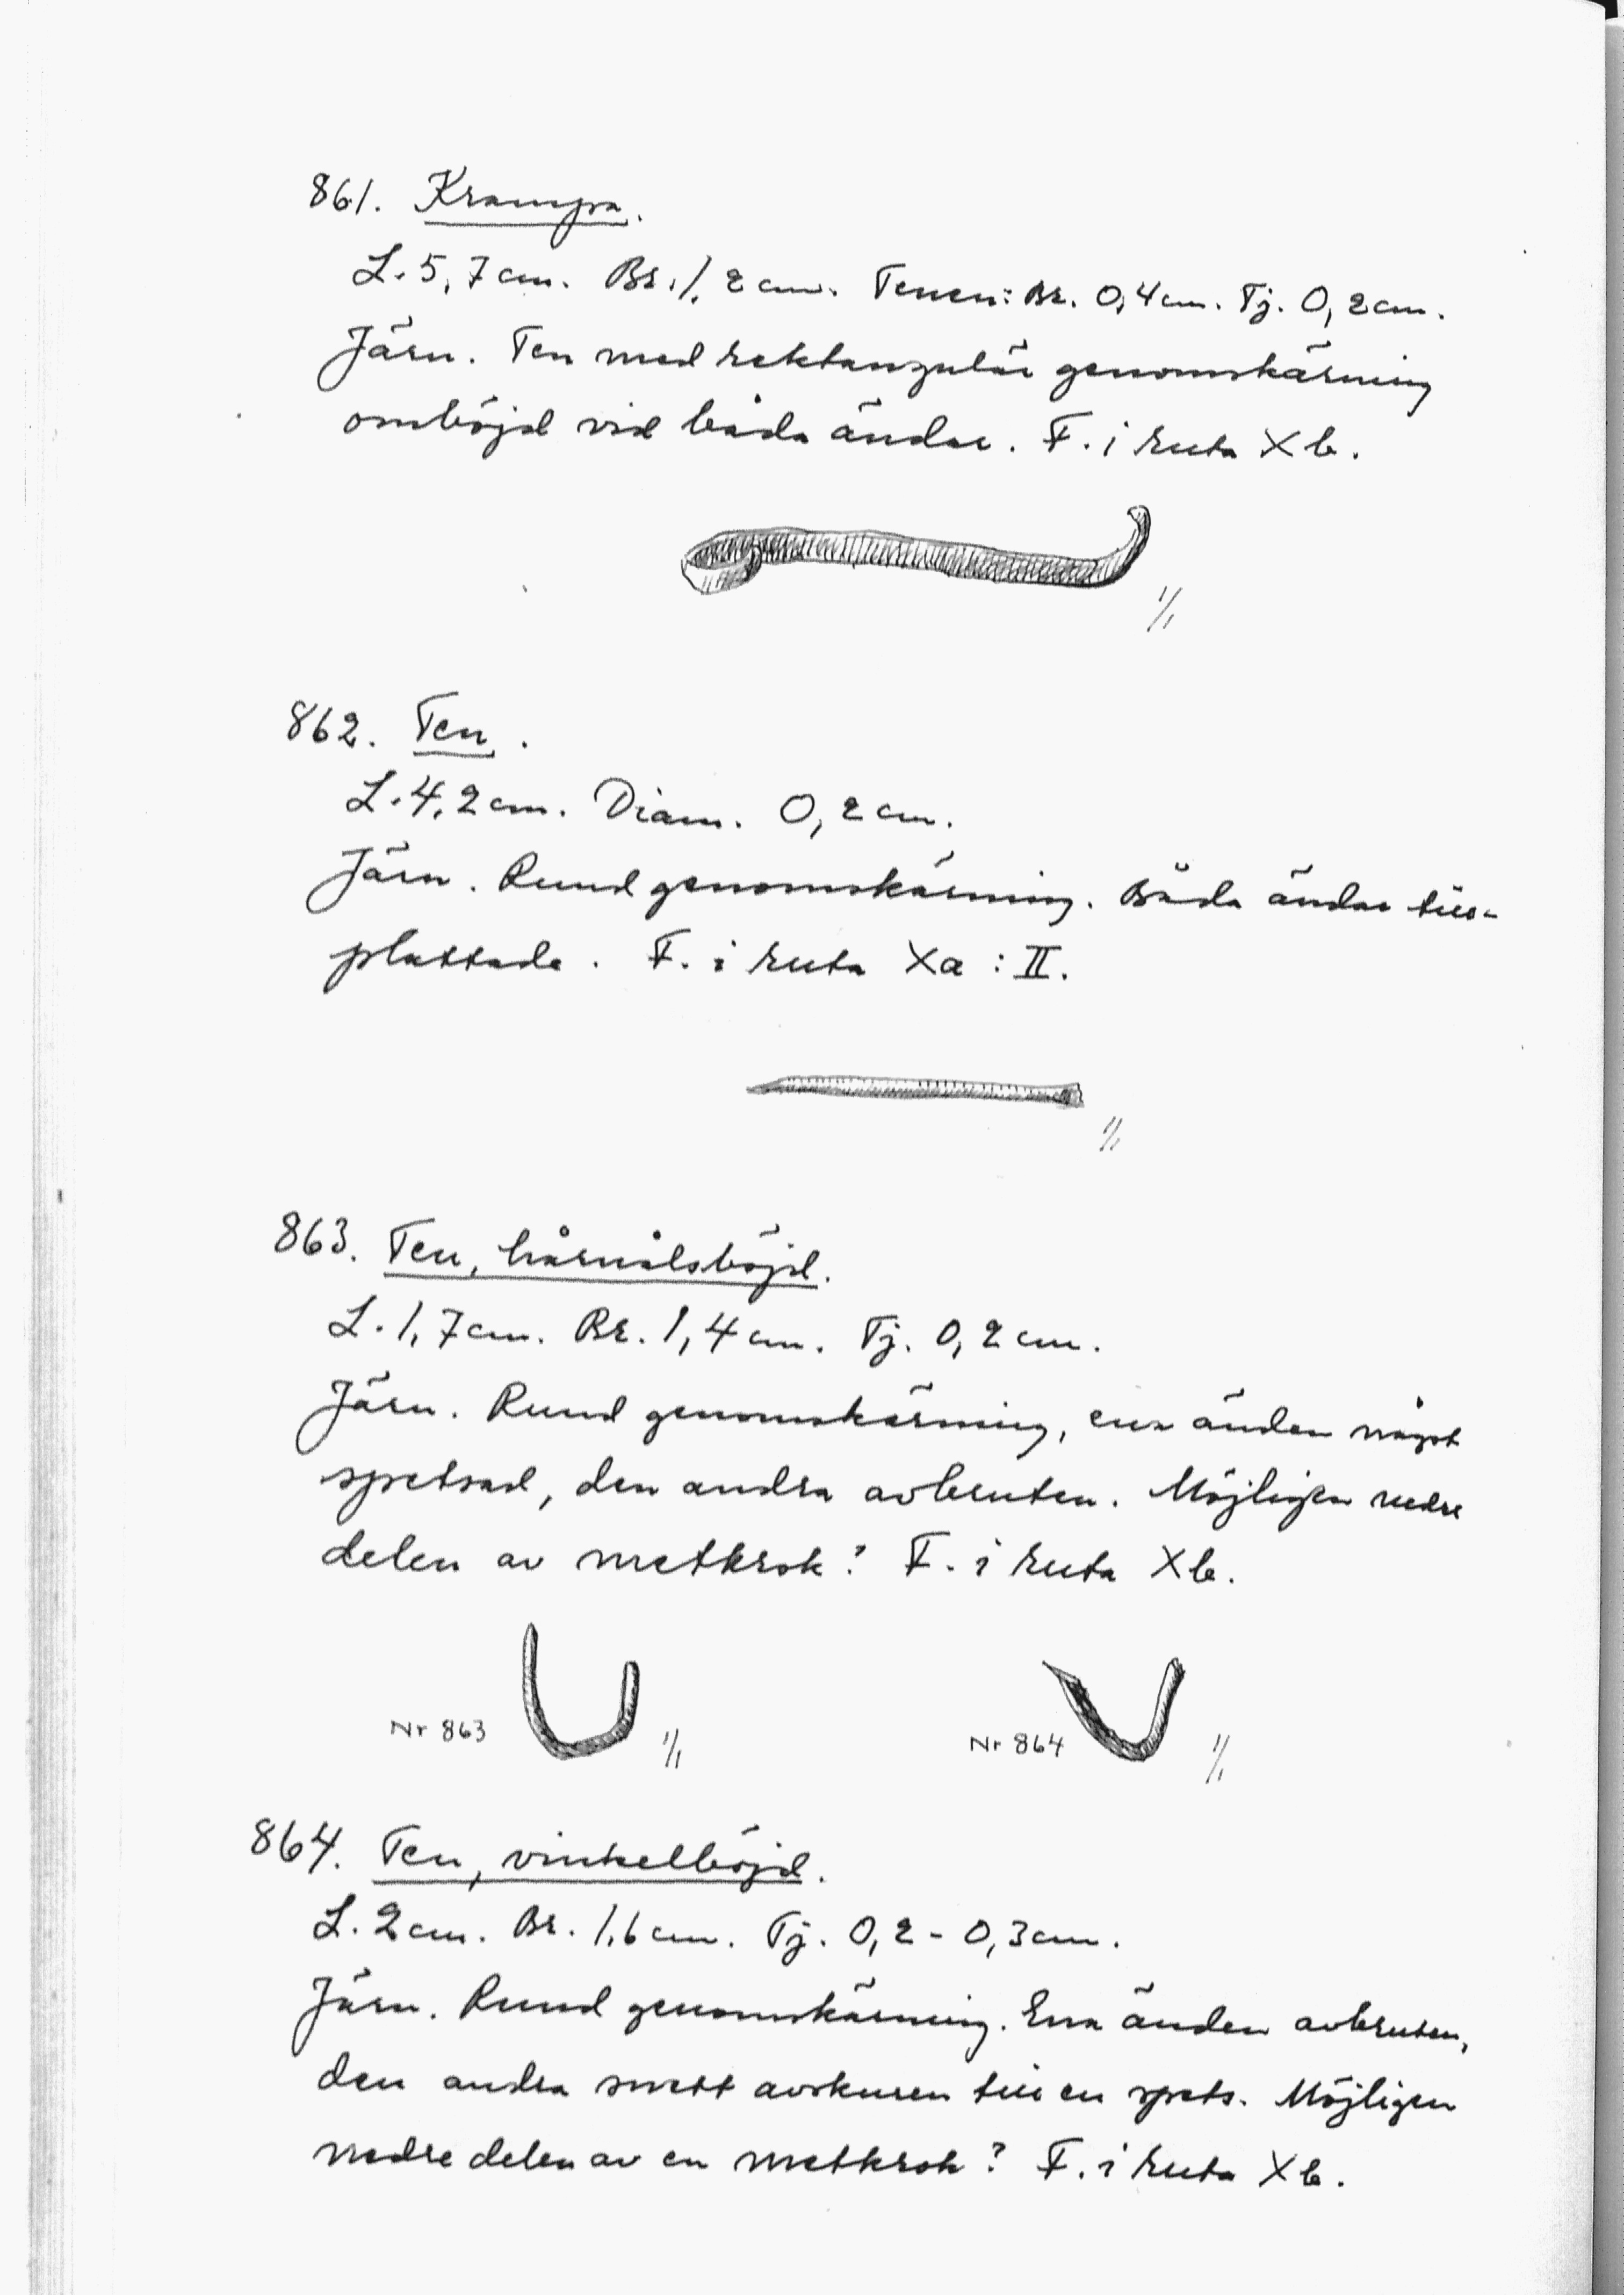 861. Krampa.
L. 5,7 cm. Br. 1,2 cm. Tenen: Br. 0,4 cm. Tj. 0,2 cm.
Järn. Ten med rektangulär genomskärning
omböjd vid båda ändar. F. i ruta Xb.
1/1
862. Ten.
L. 4,2 cm. Diam. 0,2 cm.
Järn. Rund genomskärning. Båda ändar till-
plattade. F. i ruta Xa : II.
1/1
863. Ten, hårnålsböjd.
L. 1,7 cm. Br. 1,4 cm. Tj. 0,2 cm.
Järn. Rund genomskärning, ena änden något
spetsad, den andra avbruten. Möjligen nedre
delen av metkrok? F. i ruta Xb.
Nr 863 1/1 Nr 864 1/1
864. Ten, vinkelböjd.
L. 2 cm. Br. 1,6 cm. Tj. 0,2 - 0,3 cm.
Järn. Rund genomskärning. Ena änden avbruten,
den andra snett avskuren till en spets. Möjligen
nedre delen av en metkrok? F. i ruta Xb.